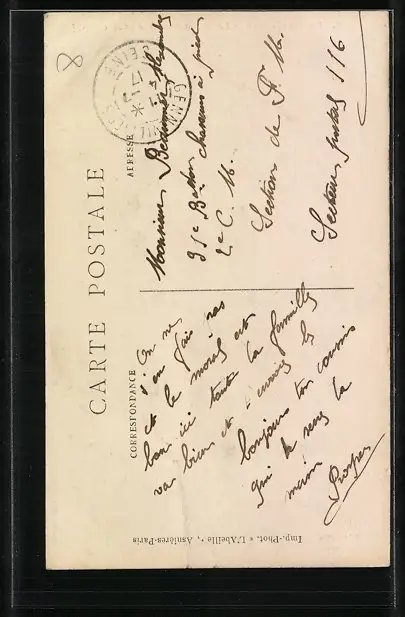 8
CARTE POSTALE
CORRESPONDANCE
ADRESSE
On ne
s'en fait pas
et le moral est
bon ici toute la famille
va bien et t'envoie le
bonjour ton cousin
qui te serre la
main
Prosper
Monsieur
31e Bon chasseurs à pied
2e C. M.
Section de
Secteur postal 116
GENNEVILLIERS
SEINE
Imp.-Phot. « L'Abeille », Asnières-Paris